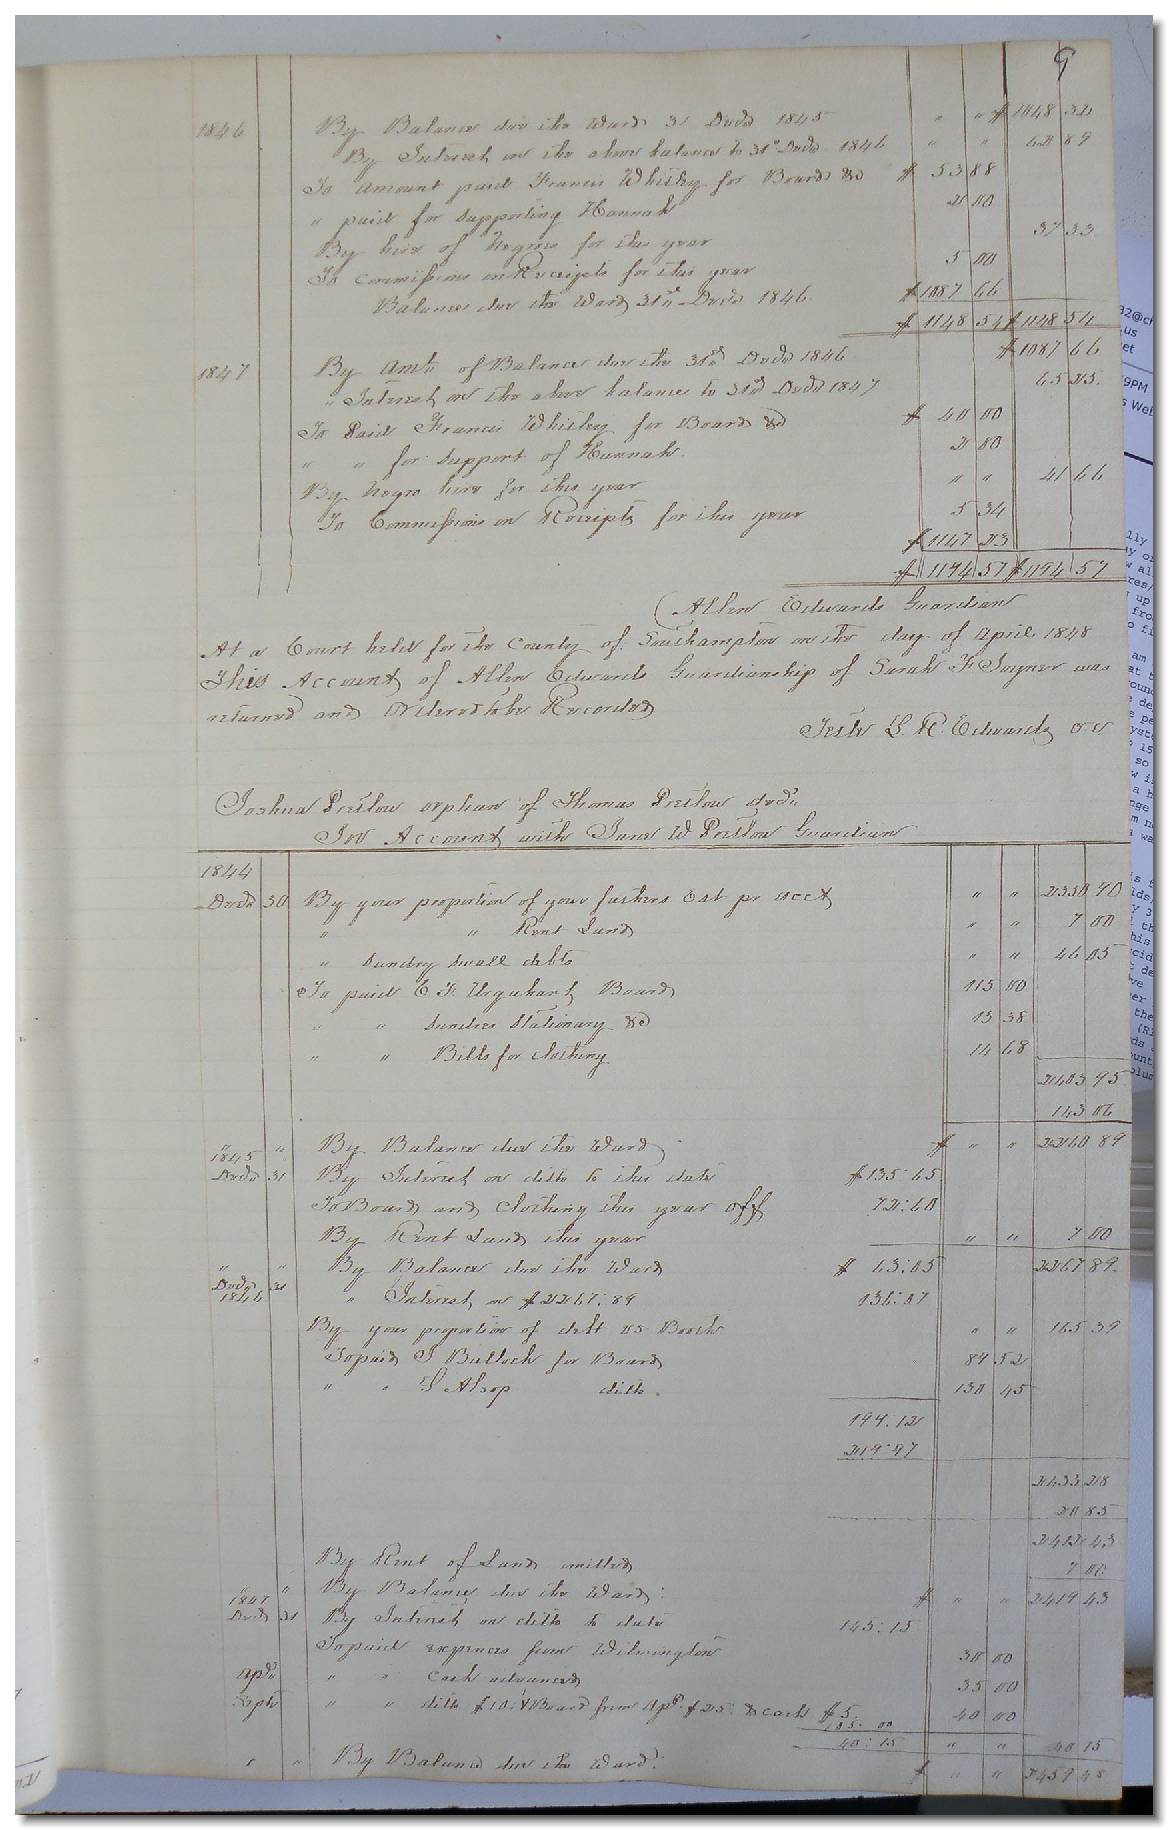 9
1846 By Balance due the Ward 31 Decr 1845 " " $1048 32
By Interest on the above balance to 31st Decr 1846 " " 62 89
To amount paid Francis Whitley for Board &c $ 53 88
" paid for supporting Hannah 2 00
By hire of Negroes for this year 37 33
To Commissions on Receipts for this year 5 00
Balance due the Ward 31st Decr 1846 $1087 66
$1148 54 $1148 54
1847 By Amt of Balance due the 31st Decr 1846 $1087 66
" Interest on the above balance to 31st Decr 1847 65 25
To Paid Francis Whitley for Board &c $ 40 00
" " for support of Hannah 2 00
By Negro hire for this year " " 41 66
To Commissions on Receipts for this year 5 34
$1147 23
$1194 57 $1194 57
Allen Edwards Guardian
At a Court held for the County of Southampton on the day of April 1848
This Account of Allen Edwards Guardianship of Sarah F Joyner was
returned and Ordered to be Recorded
Teste L. R. Edwards CC
Joshua Pretlow orphan of Thomas Pretlow decd
In Account with Jane W Pretlow Guardian
1844
Decr 30 By your proportion of your fathers Est pr acct " " 2350 90
" " Rent Land " " 7 00
" Sundry small debts " " 46 05
To paid C F Urquhart Board 115 00
" " Sundries Stationary &c 13 38
" " Bills for clothing 14 68
2403 95
143 06
" " By Balance due the Ward $ " " 2260 89
1845
Decr 31 By Interest on ditto to this date $135:65
To Board and clothing this year off 72:60
By Rent Land this year " " 7 00
" " By Balance due the Ward $ 63:05 2267 89
Decr 31
1846 " Interest on $2267:89 136:07
By your proportion of debt vs Booth " " 165 39
To paid J Bullock for Board 89 52
" " S Alsop ditto 130 45
199.12
219:97
2433 28
20 85
2412 43
By Rent of Land omitted 7 00
" By Balance due the Ward: $ " " 2419 43
1847
Decr 31 By Interest on ditto to date 145:15
To paid expences from Wilmington 30 00
Apl " " Cash advanced 35 00
Sept " " ditto $10: & Board from Apl $25: & cash $5. 40 00
105: 00
40:15 " " 40 15
" " By Balance due the Ward: $ " " 2459 48